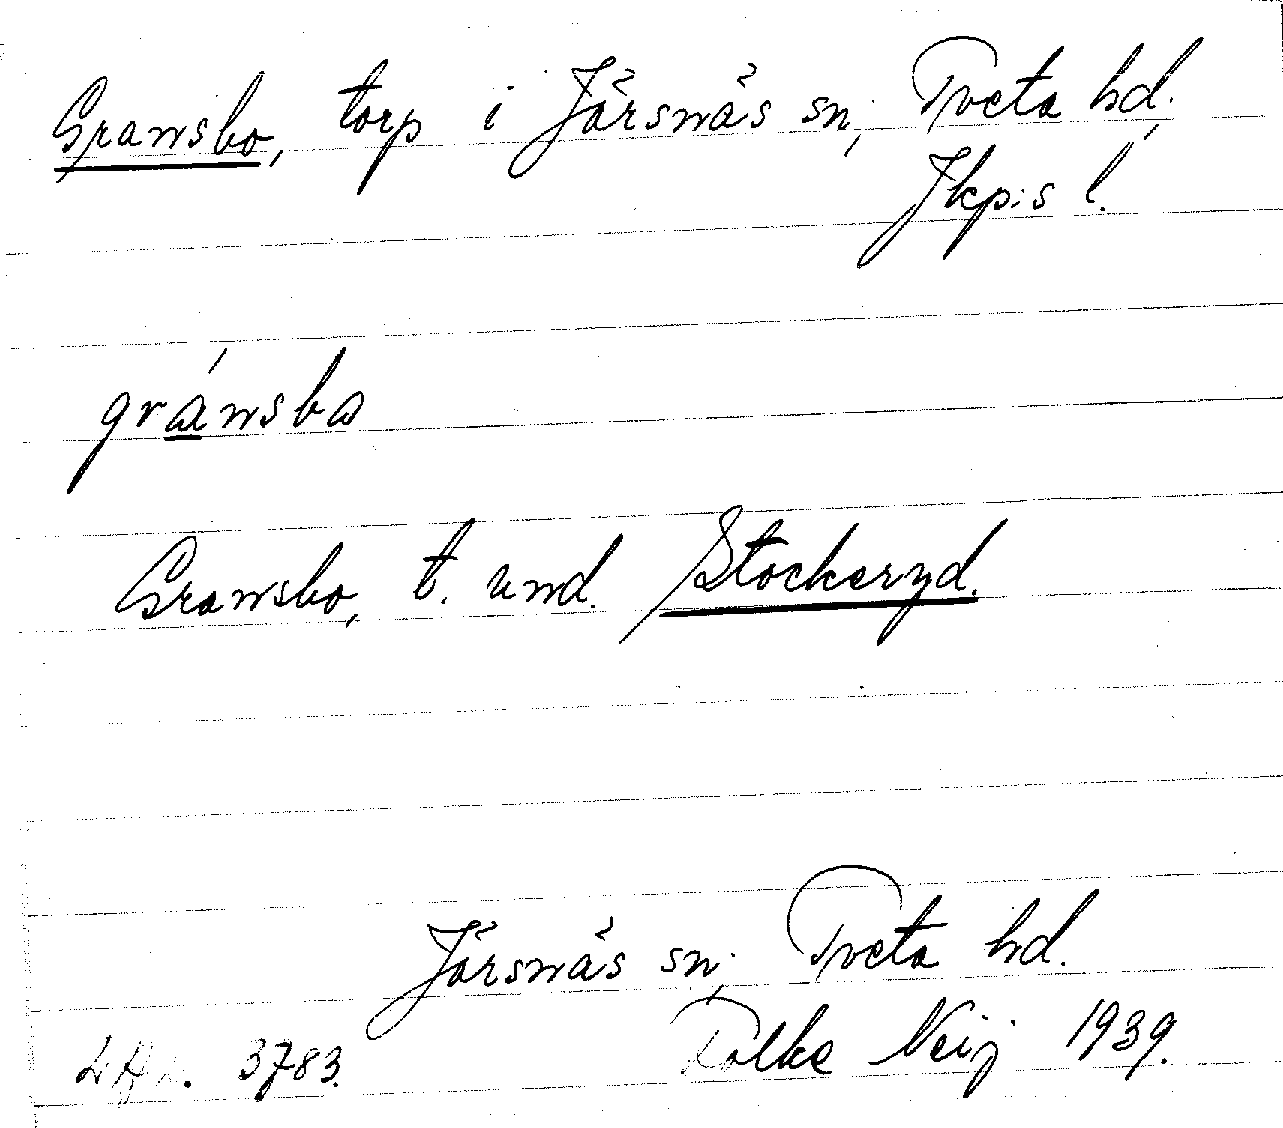 Gransbo, torp i Järsnäs sn, Tveta hd.
Jkp:s l.
gránsba
Gransbo, t. und. Stockeryd.
Järsnäs sn, Tveta hd.
3783. Folke Neij 1939.